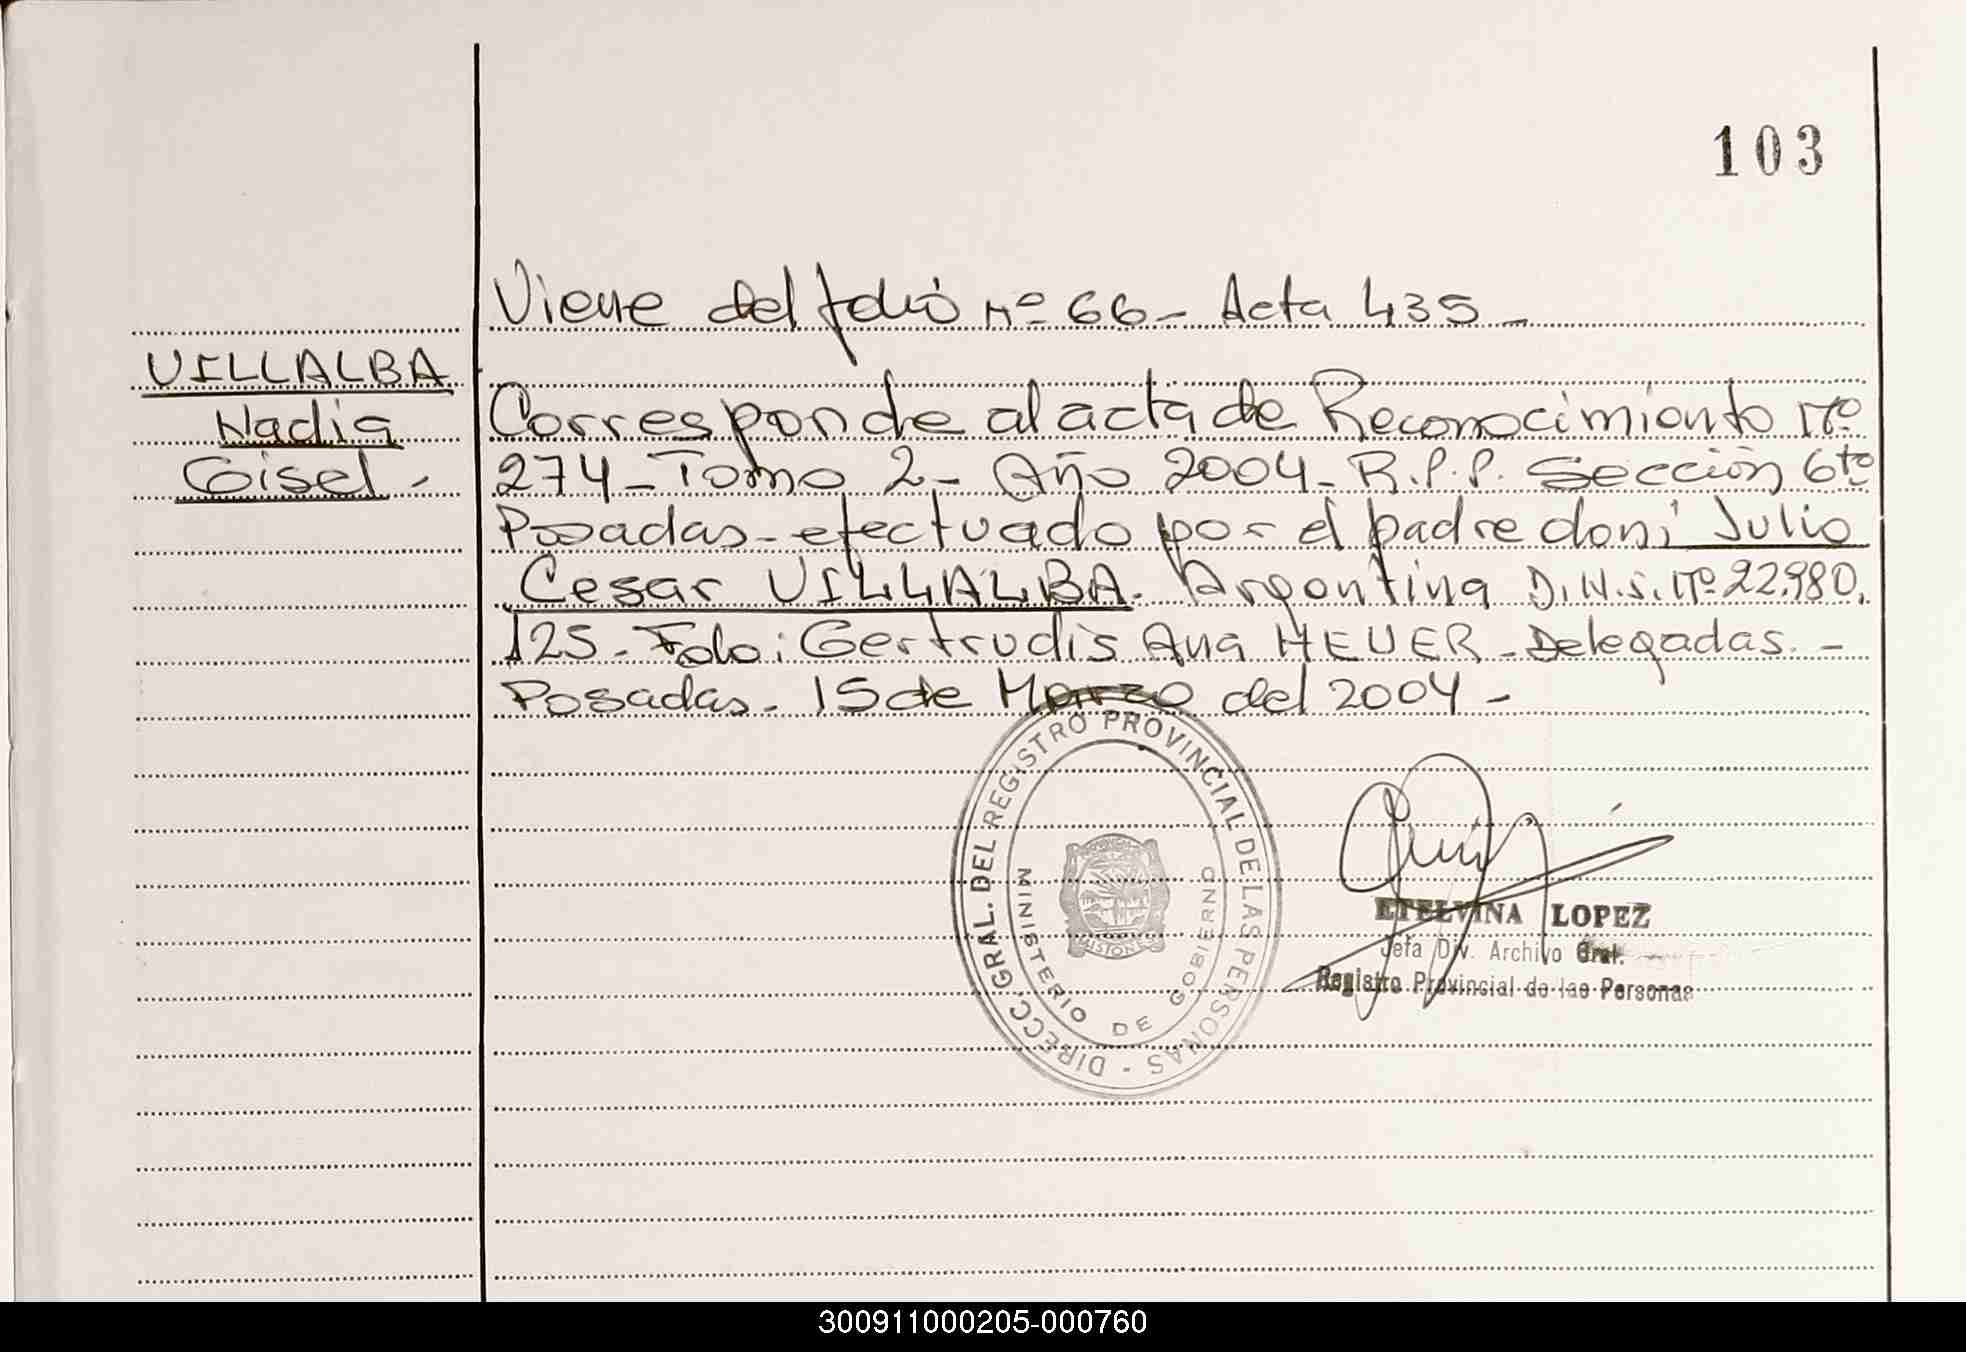 103
Viene del folio nº 66 - Acta 435 -
VILLALBA
Nadia
Gisel -
Corresponde al acta de Reconocimiento Nº
274 - Tomo 2 - Año 2004 - R.P.P. Sección 6ta
Posadas - efectuado por el padre don: Julio
Cesar VILLALBA. Argentina D.N.I. Nº 22.980.
125 - Fdo: Gertrudis Ana HEUER - Delegadas. -
Posadas - 15 de Marzo del 2004 -
DIRECC. GRAL. DEL REGISTRO PROVINCIAL DE LAS PERSONAS -
MINISTERIO DE GOBIERNO
MISIONES
ETELVINA LOPEZ
Jefa Div. Archivo Gral.
Registro Provincial de las Personas
300911000205-000760